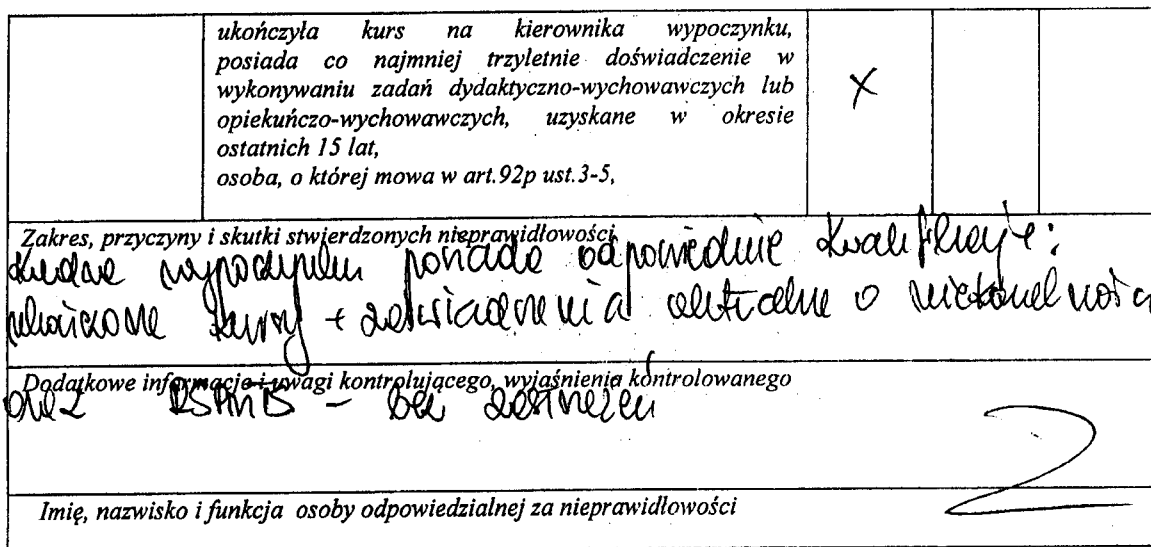 ukończyła kurs na kierownika wypoczynku,
posiada co najmniej trzyletnie doświadczenie w
wykonywaniu zadań dydaktyczno-wychowawczych lub
opiekuńczo-wychowawczych, uzyskane w okresie
ostatnich 15 lat,
osoba, o której mowa w art.92p ust.3-5,
X
Zakres, przyczyny i skutki stwierdzonych nieprawidłowości
Kadra wypoczynku posiada odpowiednie kwalifikacje:
ukończone kursy + zaświadczenia aktualne o niekaralności
Dodatkowe informacje i uwagi kontrolującego, wyjaśnienia kontrolowanego
oraz - bez zastrzeżeń
Imię, nazwisko i funkcja osoby odpowiedzialnej za nieprawidłowości